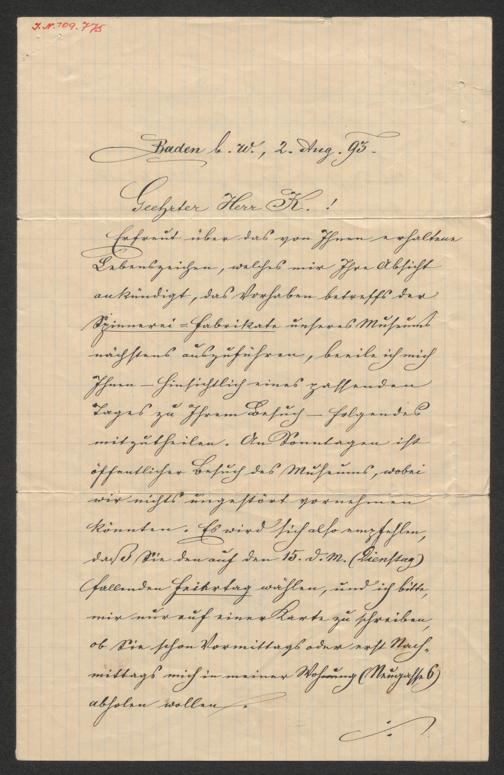 I.N. 109.775
Baden b. W., 2. Aug. 93.
Geehrter Herr K.!
Erfreut über das von Ihnen erhaltene
Lebenszeichen, welches mir Ihre Absicht
ankündigt, das Vorhaben betreffs der
Spinnerei-Fabrikate unseres Museums
nächstens auszuführen, beeile ich mich
Ihnen – hinsichtlich eines passenden
Tages zu Ihrem Besuch – Folgendes
mitzutheilen. An Sonntagen ist
öffentlicher Besuch des Museums, wobei
wir nichts ungestört vornehmen
könnten. Es wird sich also empfehlen,
daß Sie den auf den 15. d. M. (Dienstag)
fallenden Feiertag wählen, und ich bitte,
mir nur auf einer Karte zu schreiben,
ob Sie schon Vormittags oder erst Nach-
mittags mich in meiner Wohnung (Neugasse 6)
abholen wollen.